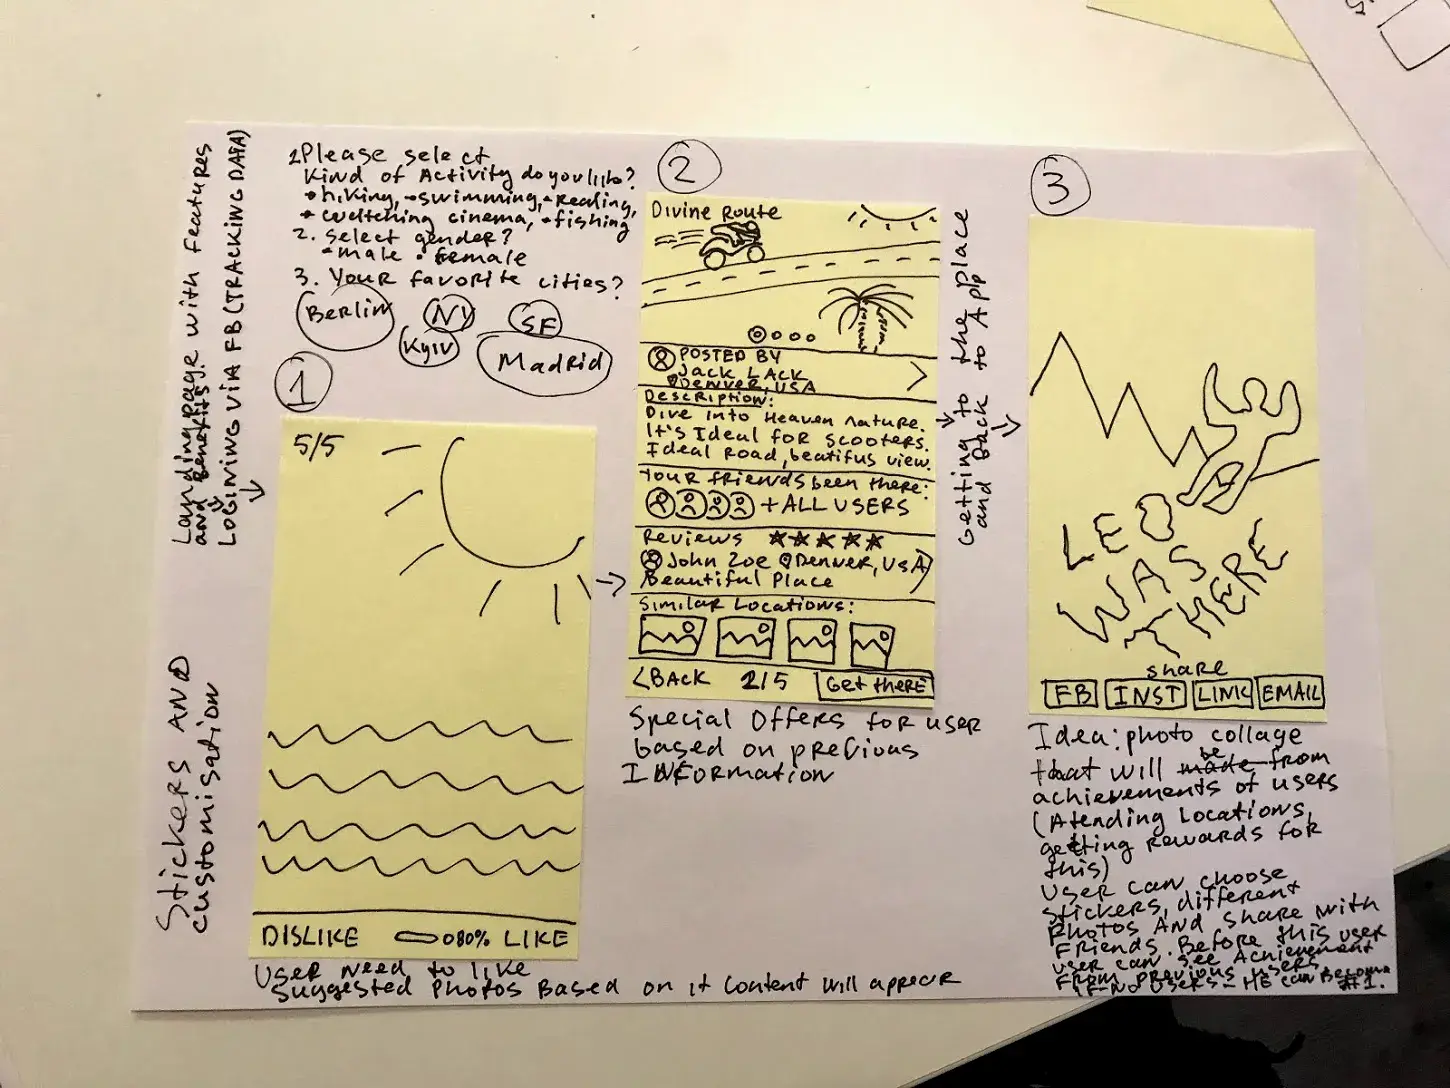 Landing page with features
and benefits.
LOGINING VIA FB (TRACKING DATA)
Stickers AND
customisation
1Please select
Kind of Activity do you like?
hiking, swimming, reading,
cinema, fishing
2. Select gender?
male • female
3. Your favorite cities?
Berlin NY SF
Kyiv Madrid
1
5/5
DISLIKE 080% LIKE
User need to like
suggested photos Based on it content will appear
2
Divine Route
POSTED BY
Jack LACK
Denver, USA
Description:
Dive into Heaven nature.
It's Ideal for scooters.
Ideal road, beatifus view.
Your friends been there:
+ ALL USERS
Reviews ★★★★★
John Zoe Denver, USA
Beautiful Place
Similar Locations:
<BACK 2/5 Get there
Special Offers for user
based on previous
INFORMATION
Getting to the place
and back to App
3
LEO
WAS
HERE
share
FB INST LINK EMAIL
Idea: photo collage
that will be made from
achievements of users
(Atending locations,
getting rewards for
this)
User can choose
stickers, different
photos AND share with
Friends. Before this user
user can see Achievement
From previous users
IF NO USERS - HE CAN BECOME
#1.